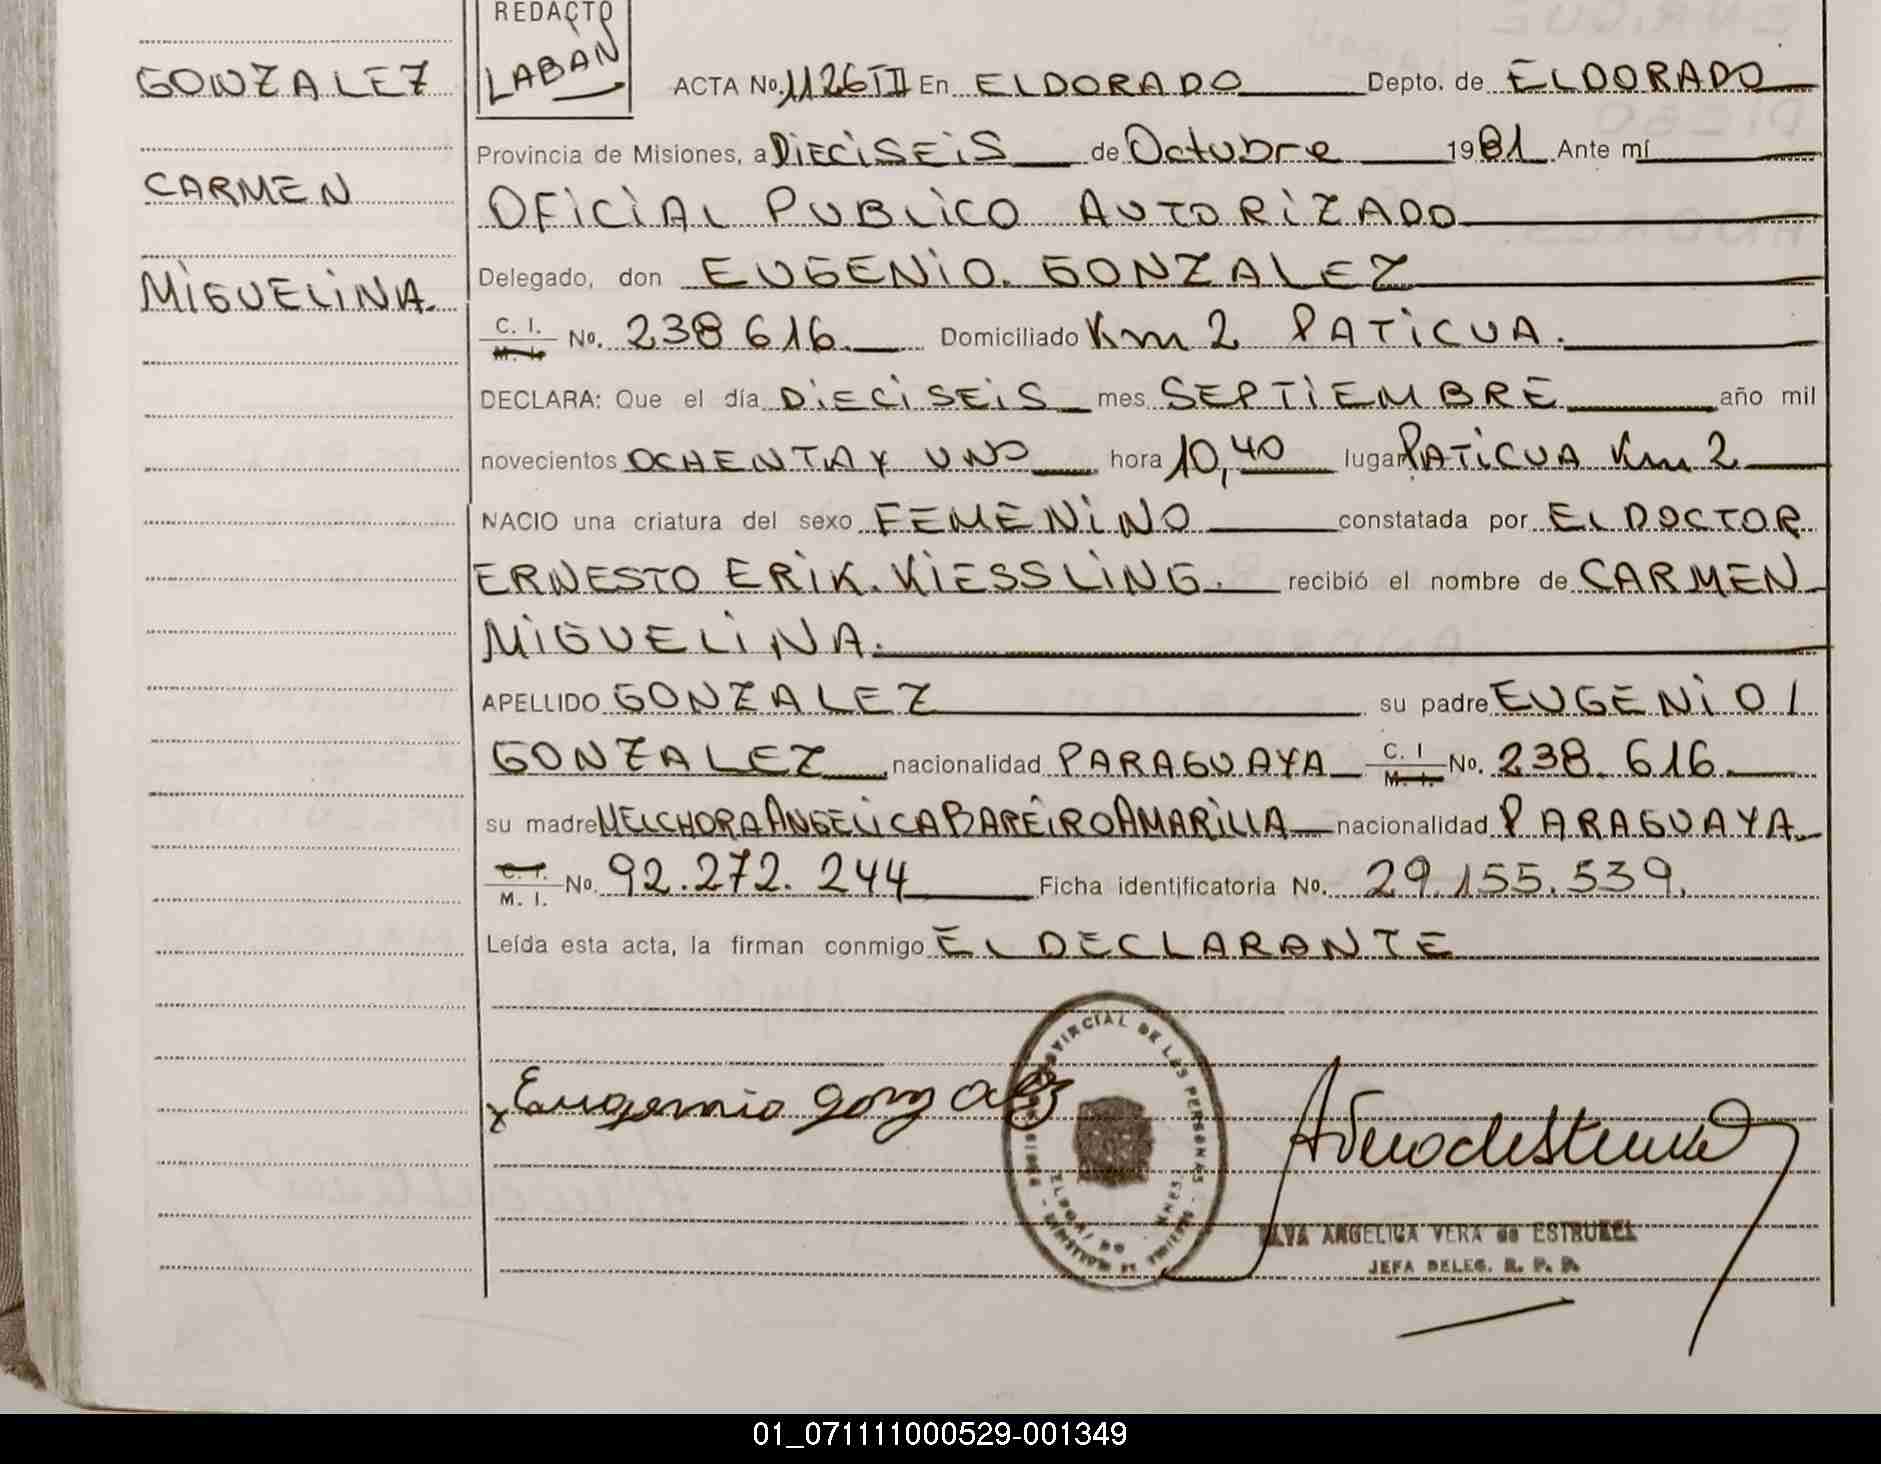 REDACTO
LABAN
GONZALEZ
CARMEN
MIGUELINA.
ACTA No. 1126 III En ELDORADO Depto. de ELDORADO
Provincia de Misiones, a DIECISEIS de Octubre 1981 Ante mí
OFICIAL PUBLICO AUTORIZADO
Delegado, don EUGENIO. GONZALEZ
C. I. M. I. No. 238 616. Domiciliado Km 2 PATICUA.
DECLARA: Que el día DIECISEIS mes SEPTIEMBRE año mil
novecientos OCHENTA Y UNO hora 10,40 lugar PATICUA Km 2
NACIO una criatura del sexo FEMENINO constatada por EL DOCTOR
ERNESTO ERIK. KIESSLING. recibió el nombre de CARMEN
MIGUELINA.
APELLIDO GONZALEZ su padre EUGENIO /
GONZALEZ nacionalidad PARAGUAYA C. I M. I. No. 238. 616.
su madre MELCHORA ANGELICA BAREIRO AMARILLA nacionalidad PARAGUAYA
C. I. M. I. No. 92.272.244 Ficha identificatoria No. 29.155.539.
Leída esta acta, la firman conmigo EL DECLARANTE
x Eugennio gonzalez
PROVINCIAL DE LAS PERSONAS
ELDORADO
ANGELICA VERA de ESTRUBEL
JEFA DELEG. R. P. P.
01_071111000529-001349